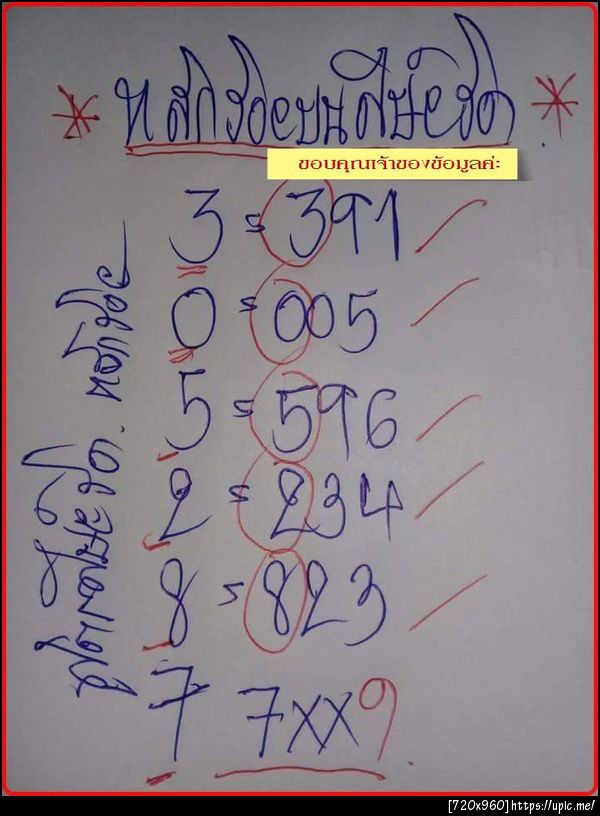 * หลักร้อยบนสิบเอ็ด *
ขอบคุณเจ้าของข้อมูลค่ะ
3 = 391
0 = 005
5 = 596
2 = 234
8 = 823
7 7xx9
หลักร้อย
[720x960]https://upic.me/